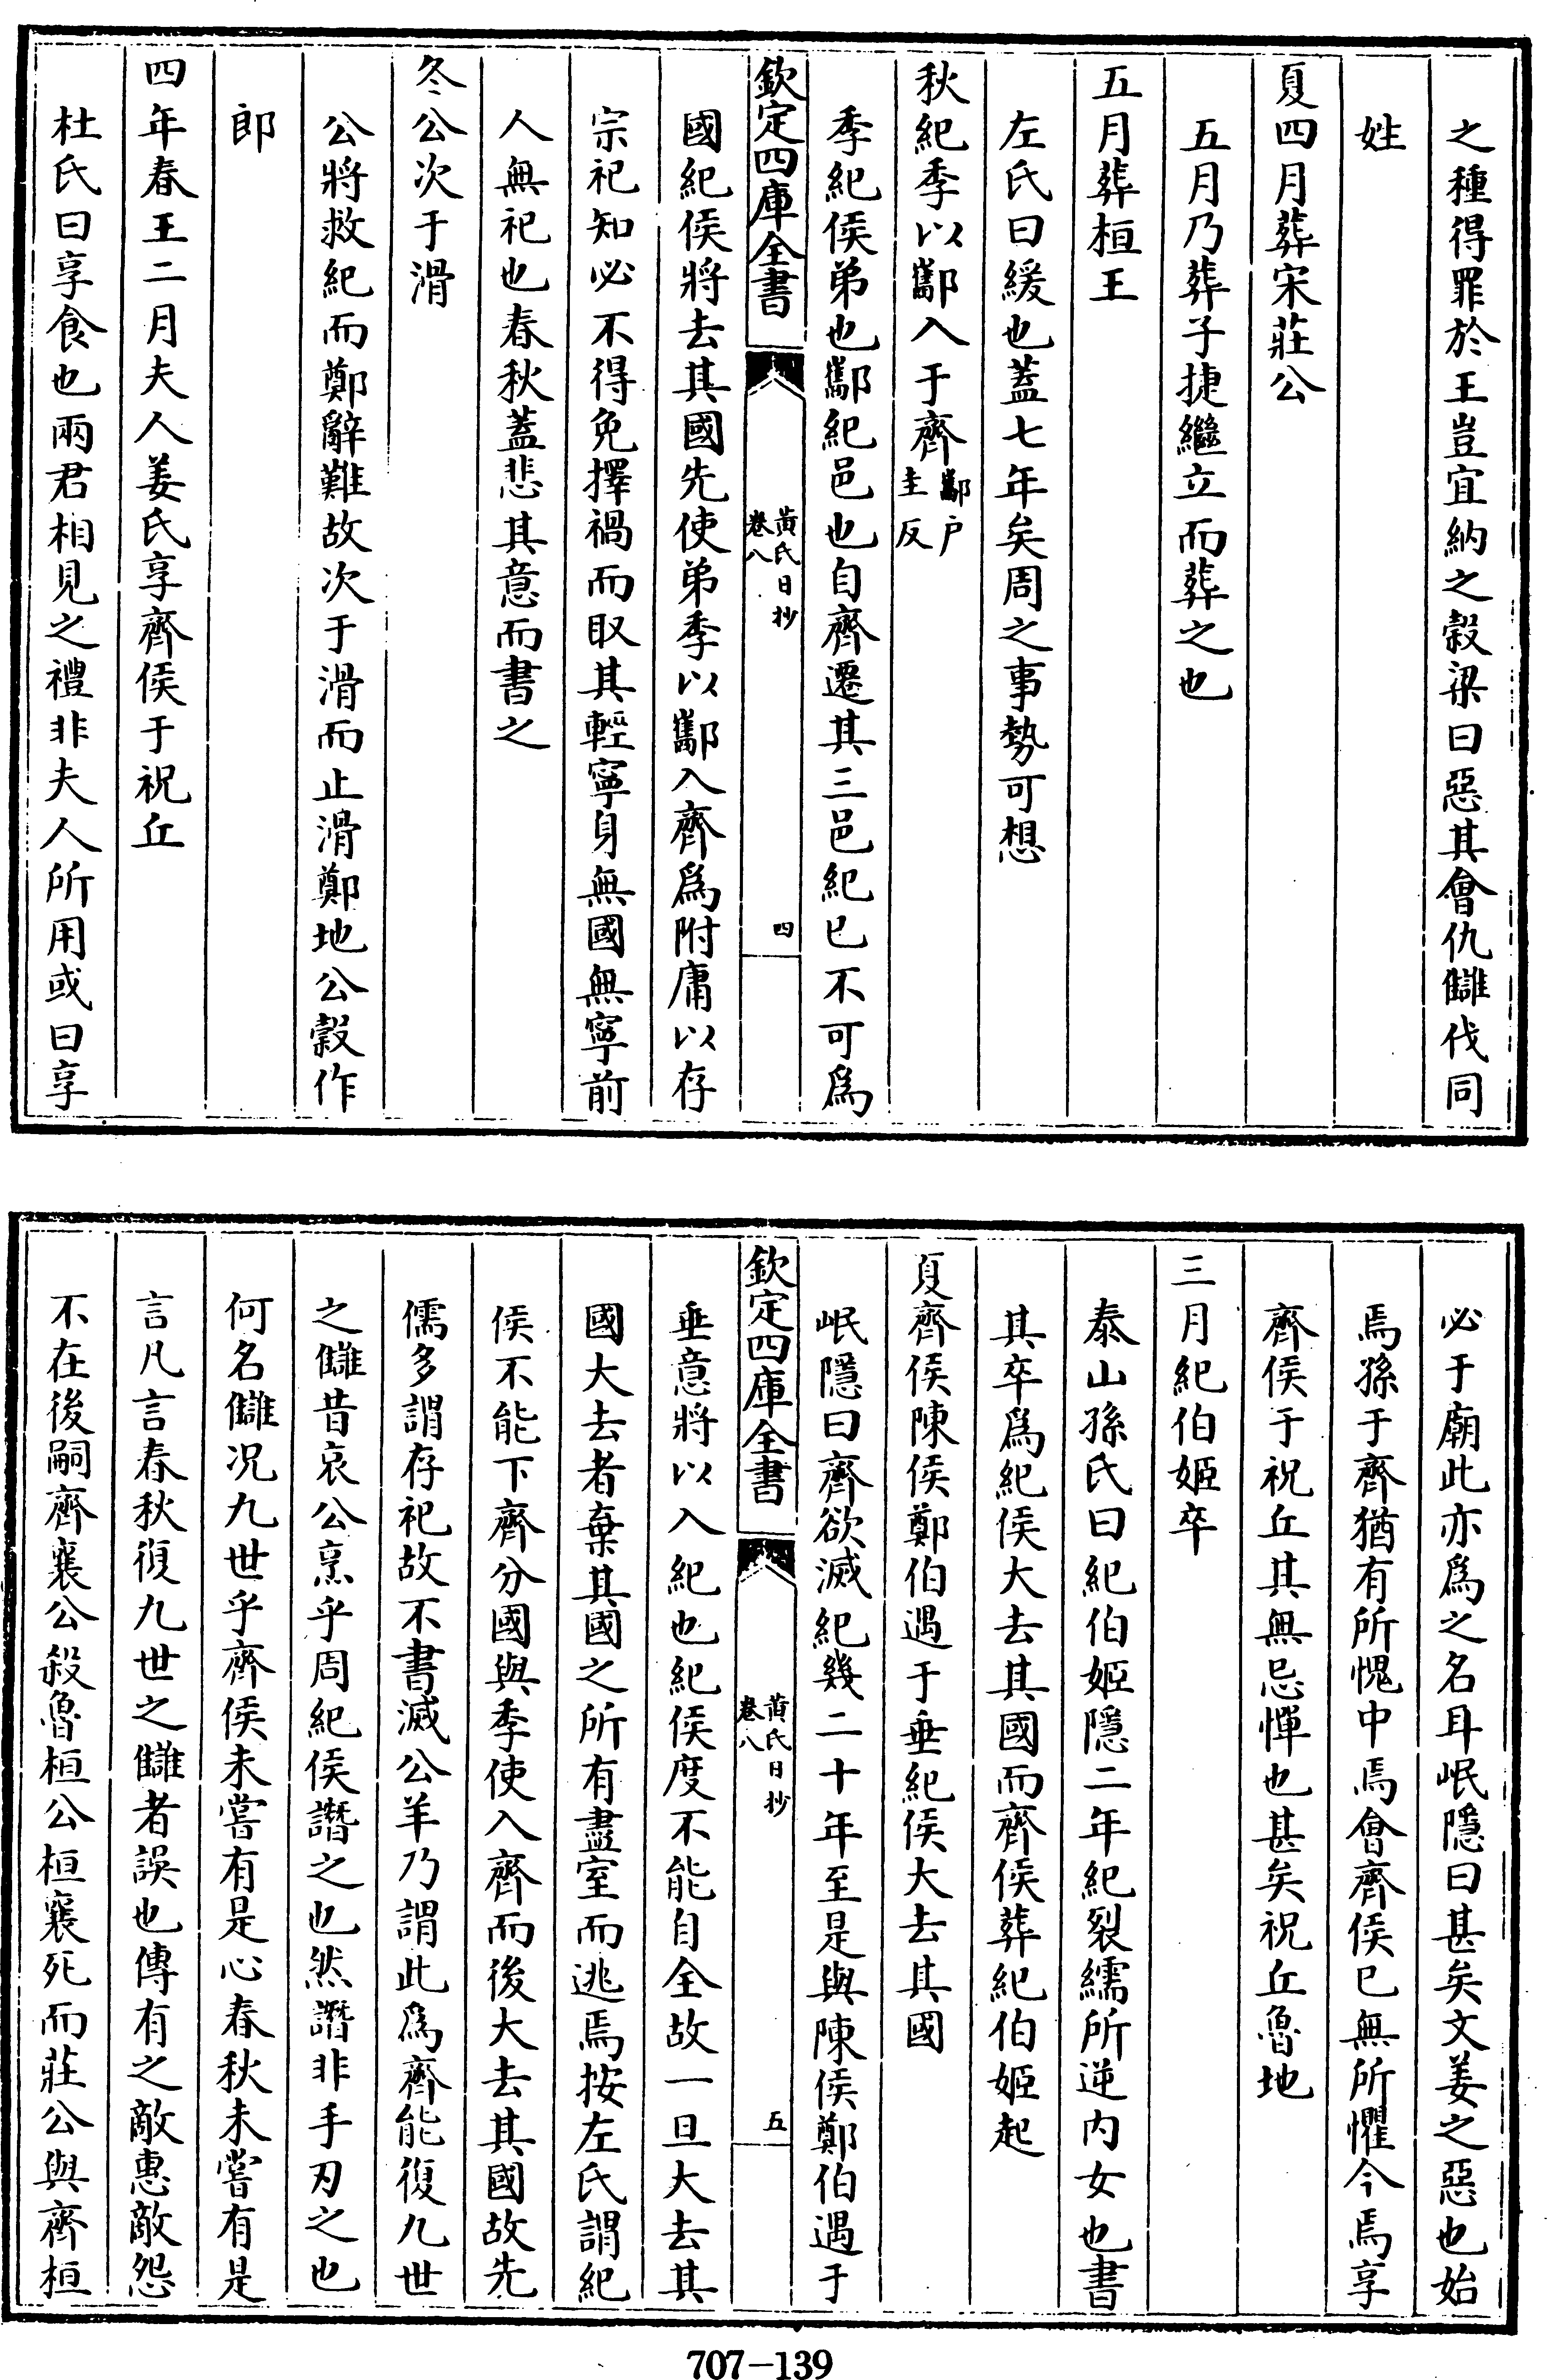 之種得罪於王豈宜納之穀梁曰惡其會仇讎伐同
姓
夏四月葬宋莊公
五月乃葬子捷繼立而葬之也
五月葬桓王
左氏曰緩也蓋七年矣周之事勢可想
秋紀季以酅入于齊酅户圭反
季紀侯弟也酅紀邑也自齊遷其三邑紀已不可爲
欽定四庫全書
黄氏日抄
卷八
四
國紀侯將去其國先使弟季以酅入齊爲附庸以存
宗祀知必不得免擇禍而取其輕寧身無國無寧前
人無祀也春秋蓋悲其意而書之
冬公次于滑
公將救紀而鄭辭難故次于滑而止滑鄭地公穀作
郎
四年春王二月夫人姜氏享齊侯于祝丘
杜氏曰享食也兩君相見之禮非夫人所用或曰享
必于廟此亦爲之名耳岷隱曰甚矣文姜之惡也始
焉孫于齊猶有所愧中焉會齊侯已無所懼今焉享
齊侯于祝丘其無忌憚也甚矣祝丘魯地
三月紀伯姬卒
泰山孫氏曰紀伯姬隱二年紀裂繻所逆内女也書
其卒爲紀侯大去其國而齊侯葬紀伯姬起
夏齊侯陳侯鄭伯遇于垂紀侯大去其國
岷隱曰齊欲滅紀幾二十年至是與陳侯鄭伯遇于
欽定四庫全書
黄氏日抄
卷八
五
垂意將以入紀也紀侯度不能自全故一旦大去其
國大去者棄其國之所有盡室而逃焉按左氏謂紀
侯不能下齊分國與季使入齊而後大去其國故先
儒多謂存祀故不書滅公羊乃謂此爲齊能復九世
之讎昔哀公烹乎周紀侯譖之也然譖非手刃之也
何名讎况九世乎齊侯未嘗有是心春秋未嘗有是
言凡言春秋復九世之讎者誤也傳有之敵惠敵怨
不在後嗣齊襄公殺魯桓公桓襄死而莊公與齊桓
707-139